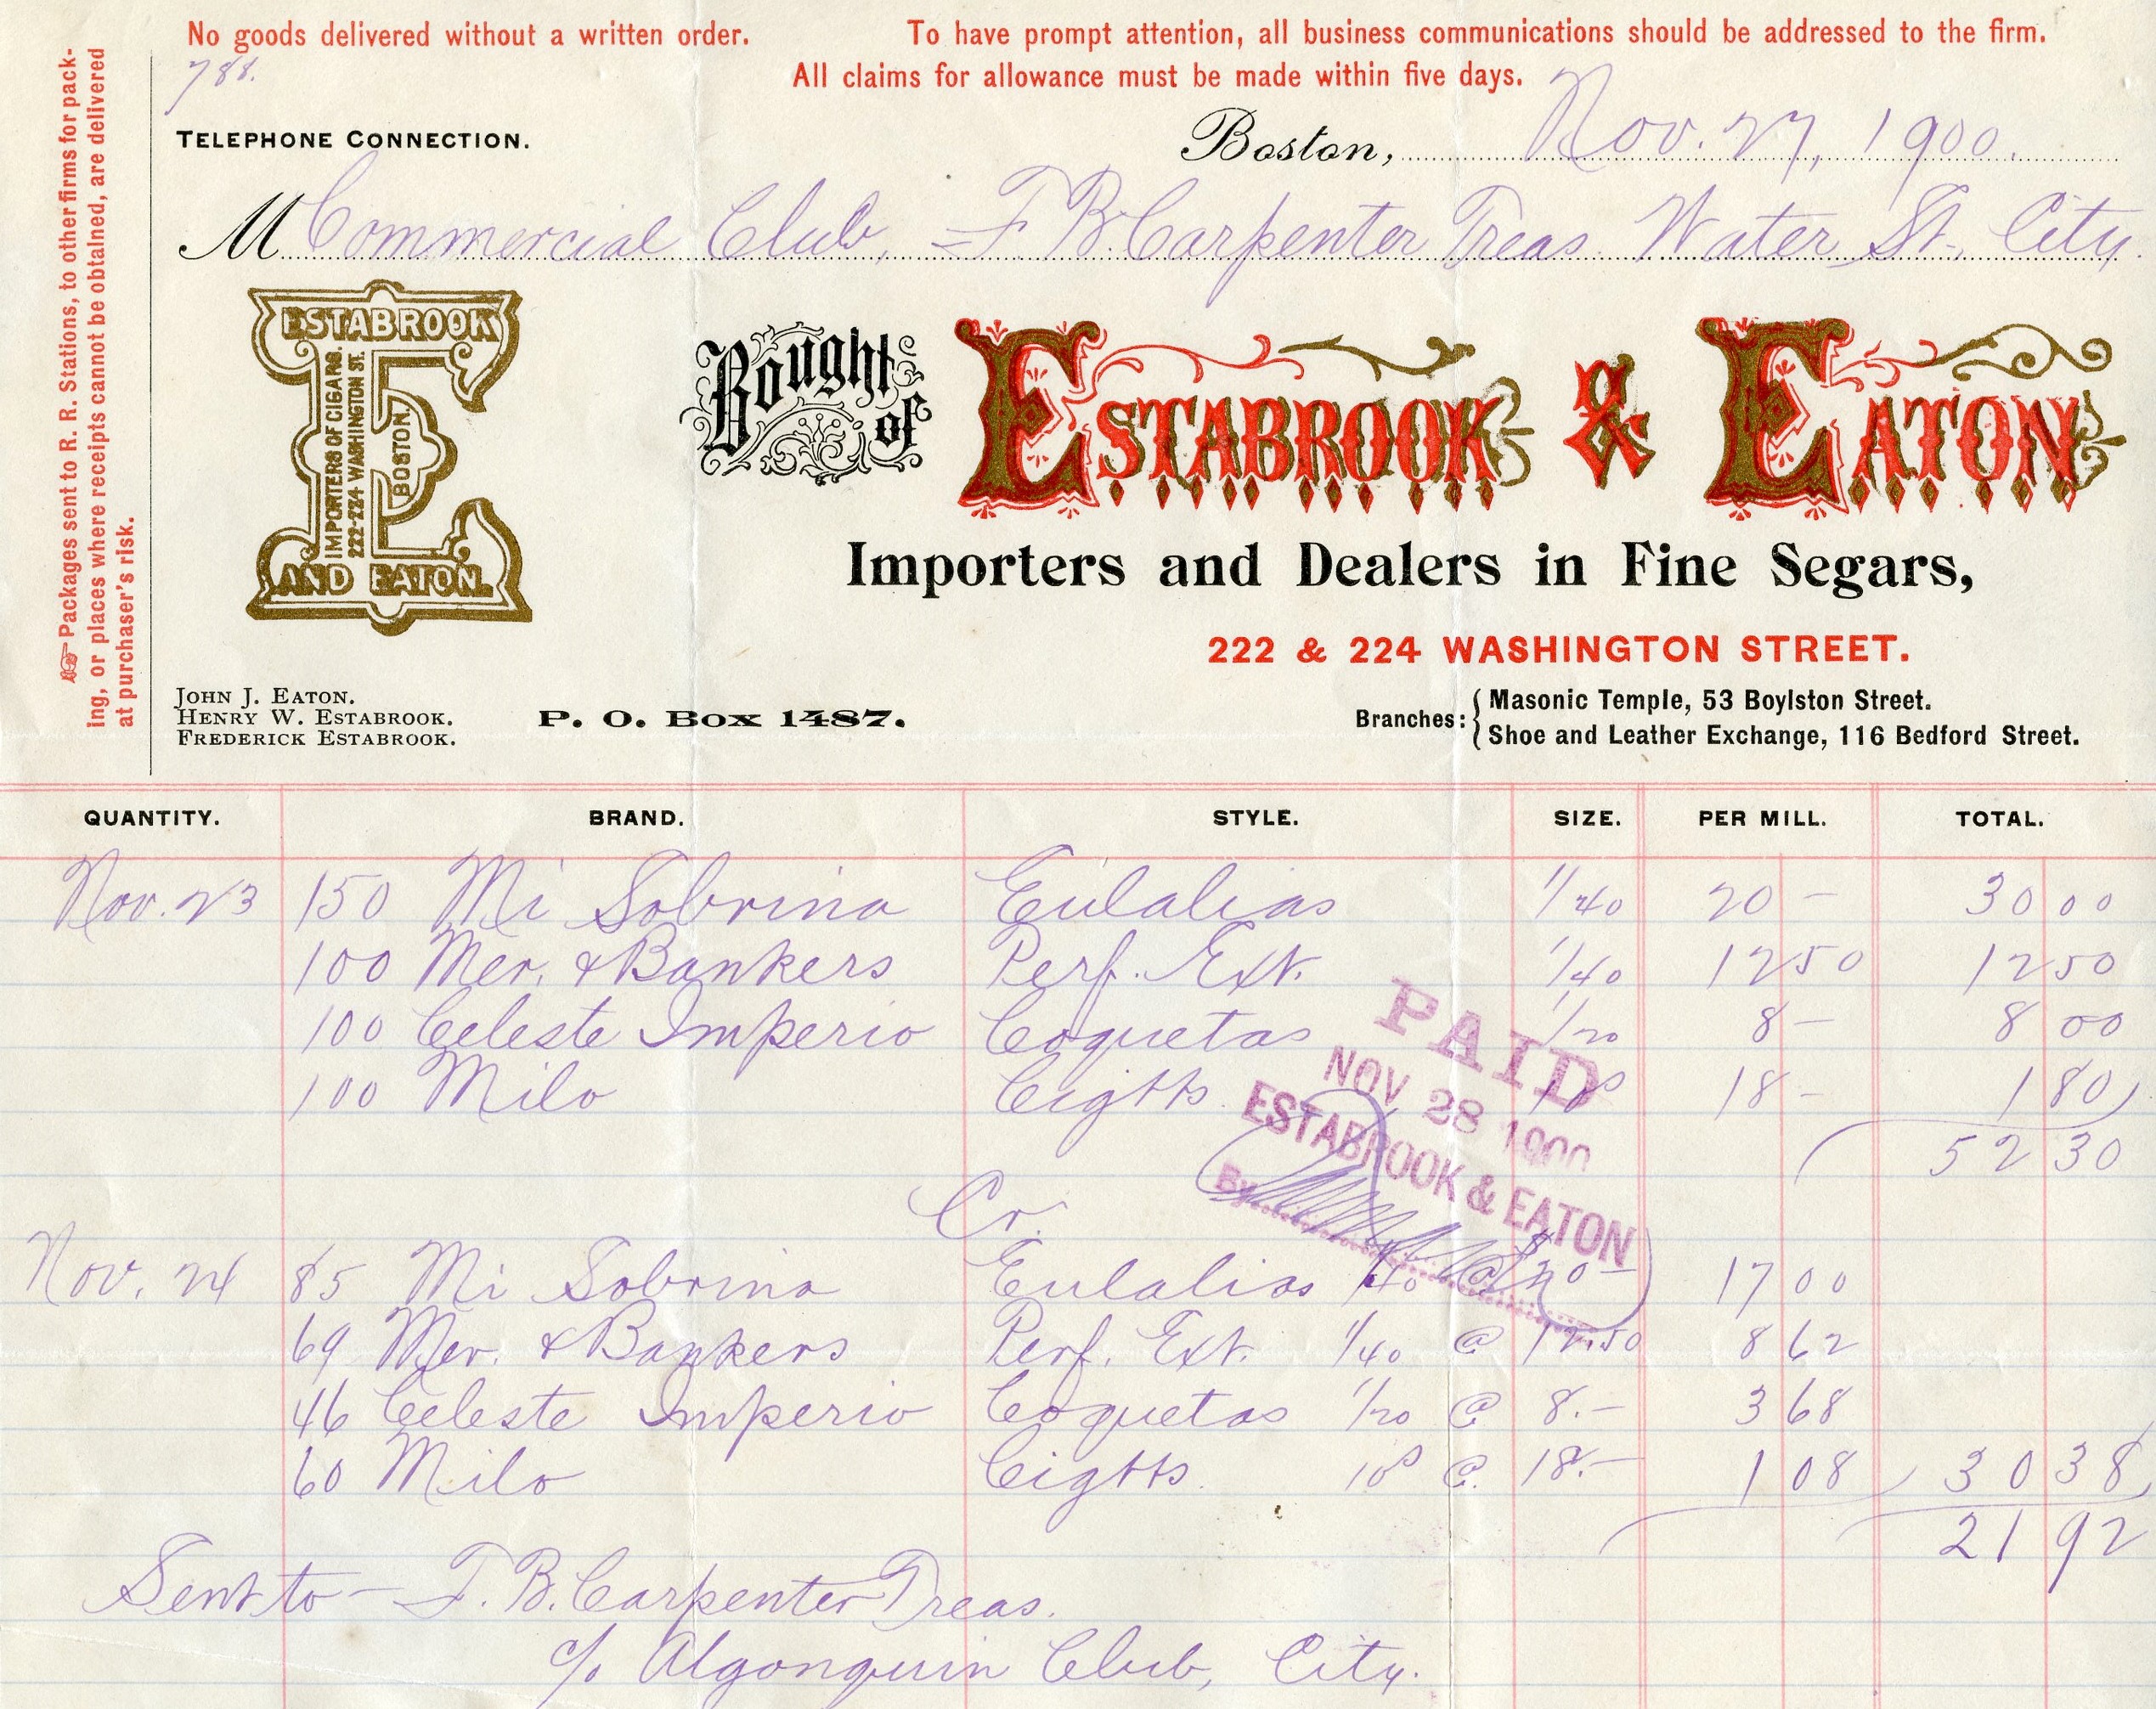 No goods delivered without a written order. To have prompt attention, all business communications should be addressed to the firm.
788.
All claims for allowance must be made within five days.
☞ Packages sent to R. R. Stations, to other firms for pack-
ing, or places where receipts cannot be obtained, are delivered
at purchaser's risk.
TELEPHONE CONNECTION.
Boston, Nov. 27, 1900.
M Commercial Club, - F B. Carpenter Treas. Water St. City.
ESTABROOK
IMPORTERS OF CIGARS.
222-224 WASHINGTON ST.
BOSTON.
AND EATON.
Bought of ESTABROOK & EATON
Importers and Dealers in Fine Segars,
222 & 224 WASHINGTON STREET.
JOHN J. EATON.
HENRY W. ESTABROOK.
FREDERICK ESTABROOK.
P. O. Box 1487.
Branches: Masonic Temple, 53 Boylston Street.
Shoe and Leather Exchange, 116 Bedford Street.
QUANTITY. BRAND. STYLE. SIZE. PER MILL. TOTAL.
Nov. 23 150 Mi Sobrina Eulalias 1/40 20 - 30 00
100 Mer. & Bankers Perf. Ext. 1/40 12 50 12 50
100 Celeste Imperio Coquetas 1/20 8 - 8 00
100 Milo Cigtts. 10s 18 - 1 80
52 30
PAID
NOV 28 1900
ESTABROOK & EATON
By
Cr.
Nov. 24 85 Mi Sobrina Eulalias 1/40 @ 20 - 17 00
69 Mer. & Bankers Perf. Ext. 1/40 @ 12.50 8 62
46 Celeste Imperio Coquetas 1/20 @ 8.- 3 68
60 Milo Cigtts. 10s @ 18.- 1 08 30 38
21 92
Sent to - F. B. Carpenter Treas.
c/o Algonquin Club, City.